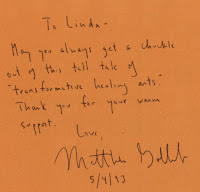 To Linda-
May you always get a chuckle
out of this tall tale of
"transformative healing arts".
Thank you for your warm
support.
Love,
Matthew Gollub
5/4/93